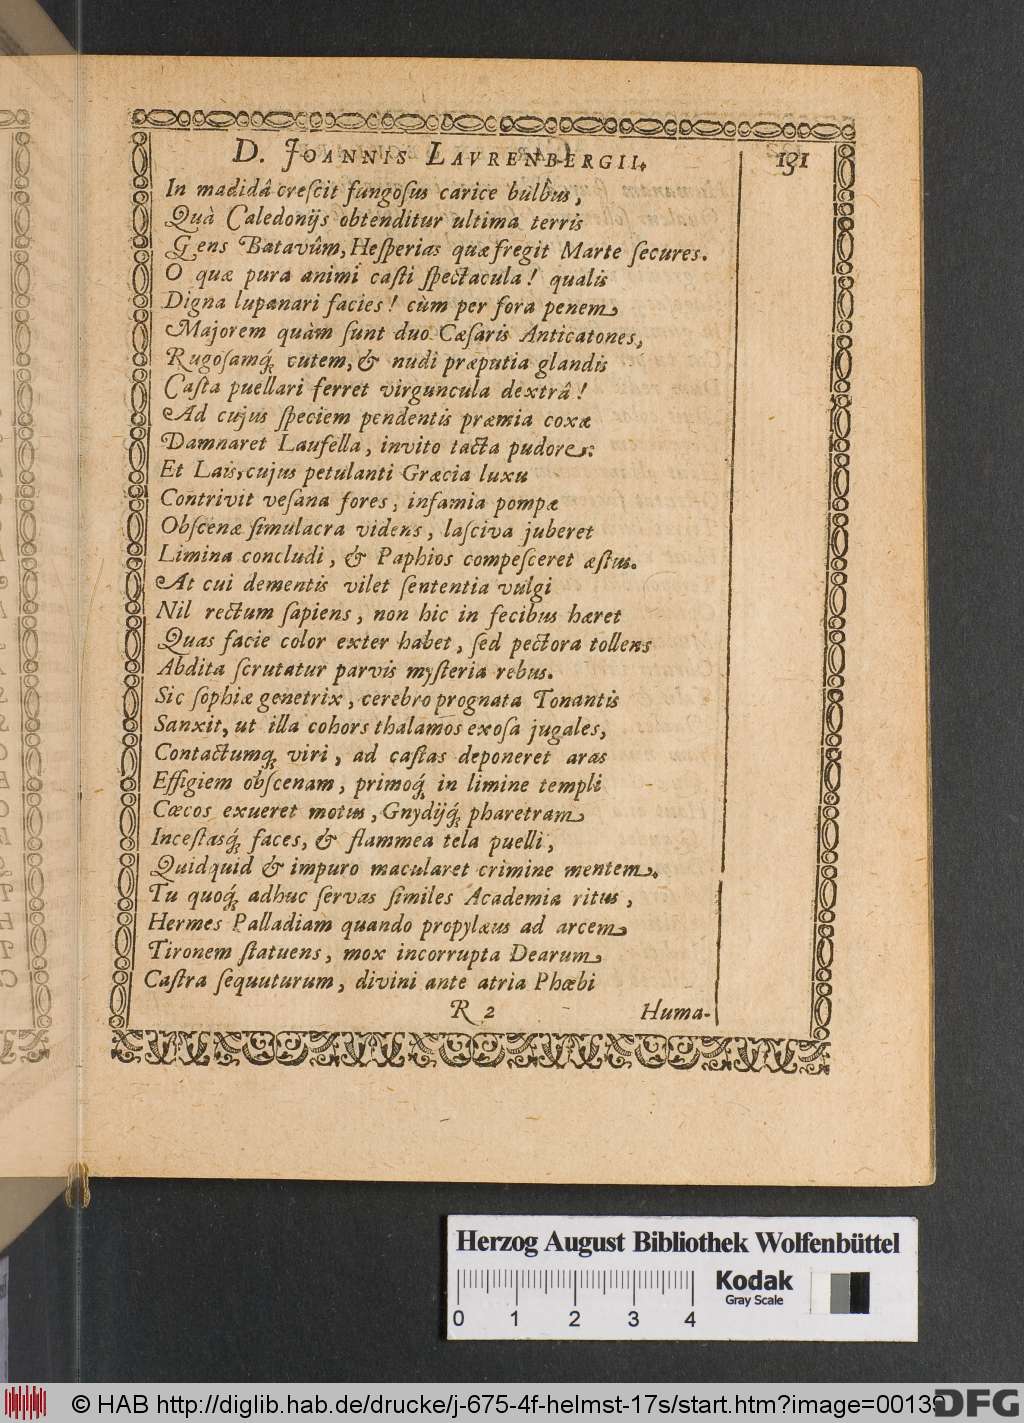 D. JOANNIS LAVRENBERGII. 131
In madidâ creſcit fungoſus carice bulbus,
Quà Caledonijs obtenditur ultima terris
Gens Batavûm, Heſperias quæ fregit Marte ſecures.
O quæ pura animi caſti ſpectacula! qualis
Digna lupanari facies! cùm per fora penem
Majorem quàm ſunt duo Cæſaris Anticatones,
Rugoſamq́; cutem, & nudi præputia glandis
Caſta puellari ferret virguncula dextrâ!
Ad cujus ſpeciem pendentis præmia coxæ
Damnaret Laufella, invito tacta pudore:
Et Lais, cujus petulanti Græcia luxu
Contrivit veſana fores, infamia pompæ
Obſcenæ ſimulacra videns, laſciva juberet
Limina concludi, & Paphios compeſceret æſtus.
At cui dementis vilet ſententia vulgi
Nil rectum ſapiens, non hic in fecibus hæret
Quas facie color exter habet, ſed pectora tollens
Abdita ſcrutatur parvis myſteria rebus.
Sic ſophiæ genetrix, cerebro prognata Tonantis
Sanxit, ut illa cohors thalamos exoſa jugales,
Contactumq; viri, ad caſtas deponeret aras
Effigiem obſcenam, primoq́; in limine templi
Cæcos exueret motus, Gnydijq́; pharetram
Inceſtasq́; faces, & flammea tela puelli,
Quidquid & impuro macularet crimine mentem.
Tu quoq́; adhuc ſervas ſimiles Academia ritus,
Hermes Palladiam quando propylæus ad arcem
Tironem ſtatuens, mox incorrupta Dearum
Caſtra ſequuturum, divini ante atria Phœbi
R 2 Huma-
Herzog August Bibliothek Wolfenbüttel
Kodak
Gray Scale
0 1 2 3 4
© HAB http://diglib.hab.de/drucke/j-675-4f-helmst-17s/start.htm?image=00139
DFG